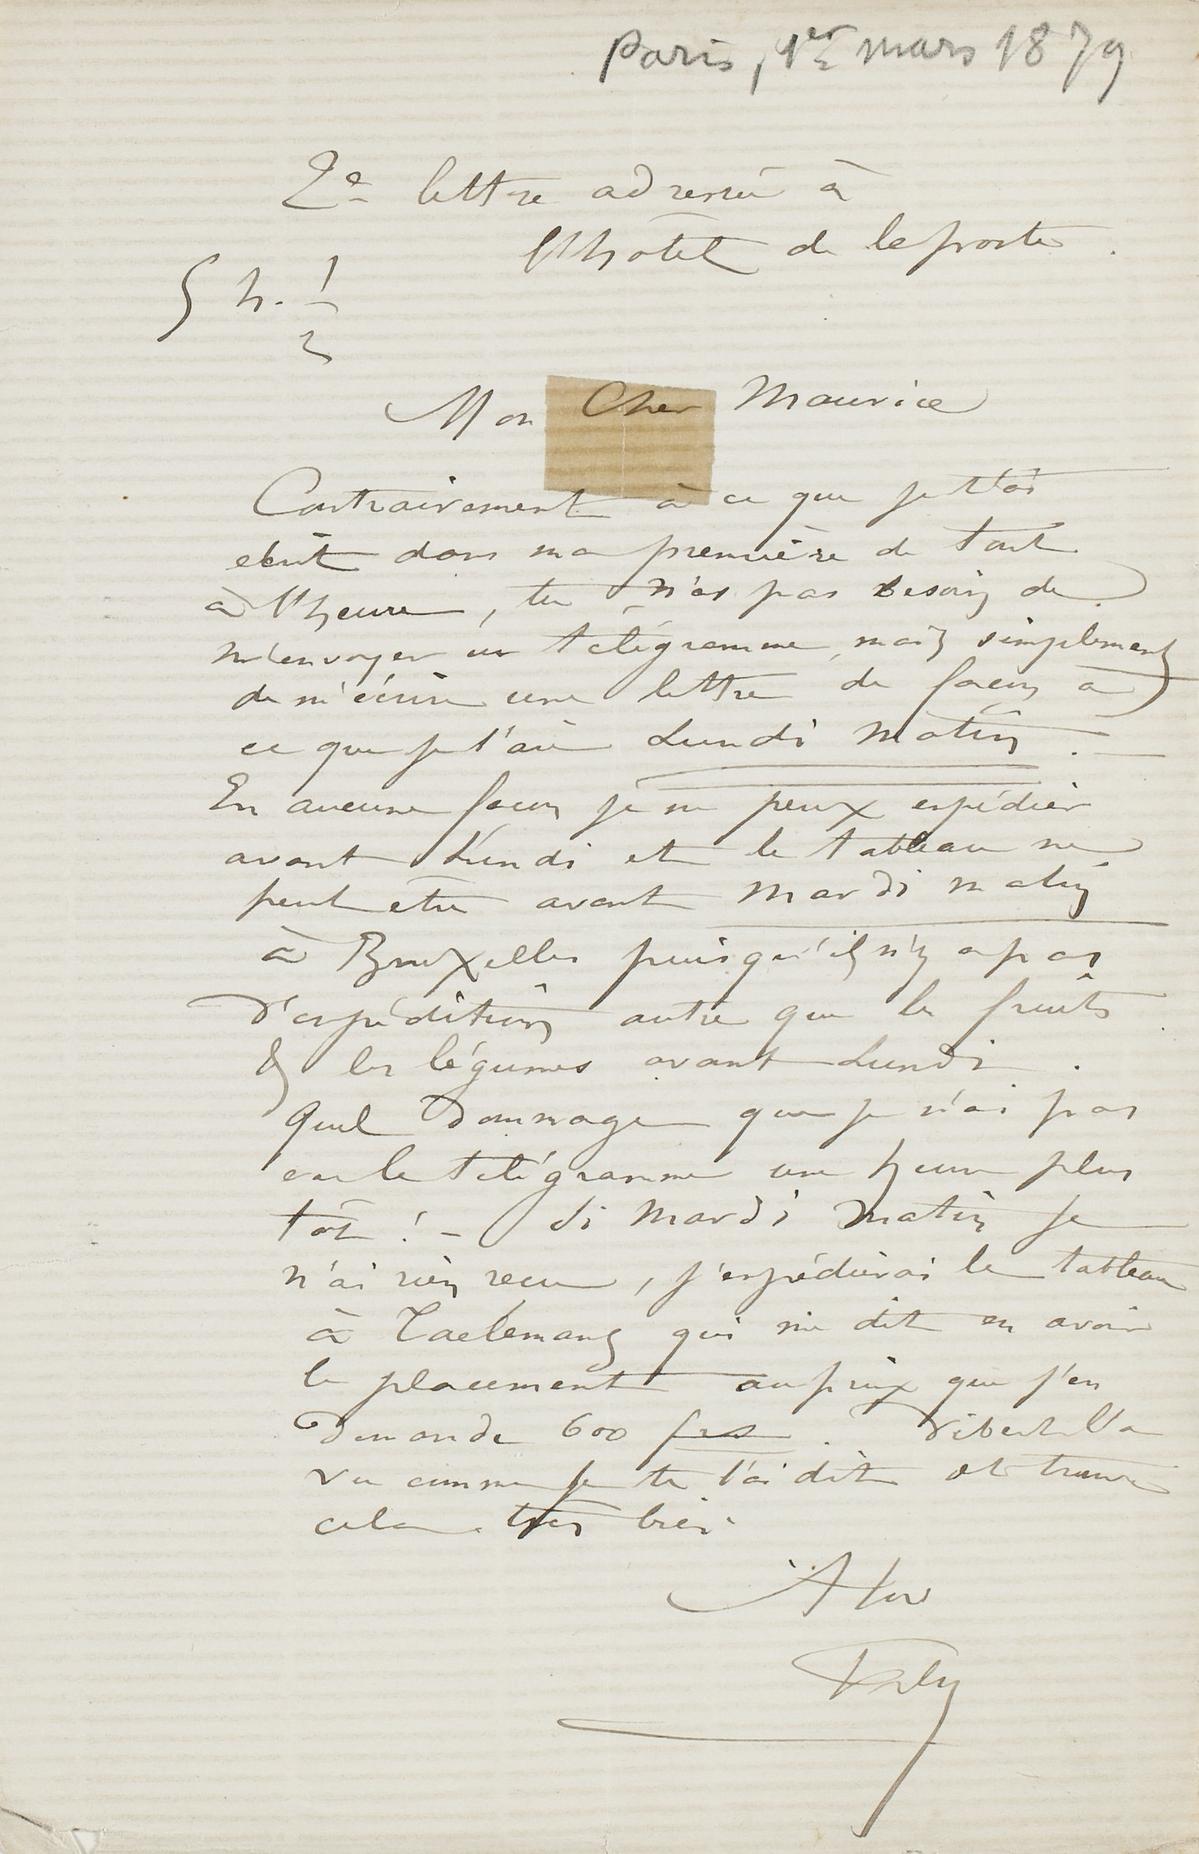 Paris, 1er mars 1879
2e lettre adressée à
l'hotel de la poste.
5 h. 1/2
Mon Cher Maurice
Contrairement à ce que je t'ai
écrit dans ma première de tout
à l'heure, tu n'as pas besoin de
m'envoyer un télégramme, mais simplement
de m'écrire une lettre de façon à
ce que je l'aie Lundi matin.
En aucune façon je ne peux expédier
avant Lundi et le tableau ne
peut etre avant mardi matin
à Bruxelles puisqu'il n'y a pas
d'expédition autre que les fruits
& les légumes avant Lundi.
Quel dommage que je n'ai pas
eu le télégramme une heure plus
tôt ! - Si Mardi matin je
n'ai rien reçu, j'expédierai le tableau
à Taelemans qui me dit en avoir
le placement au prix que j'en
demande 600 frs. l'a
vu comme je te l'ai dit et trouve
cela très bien.
À toi